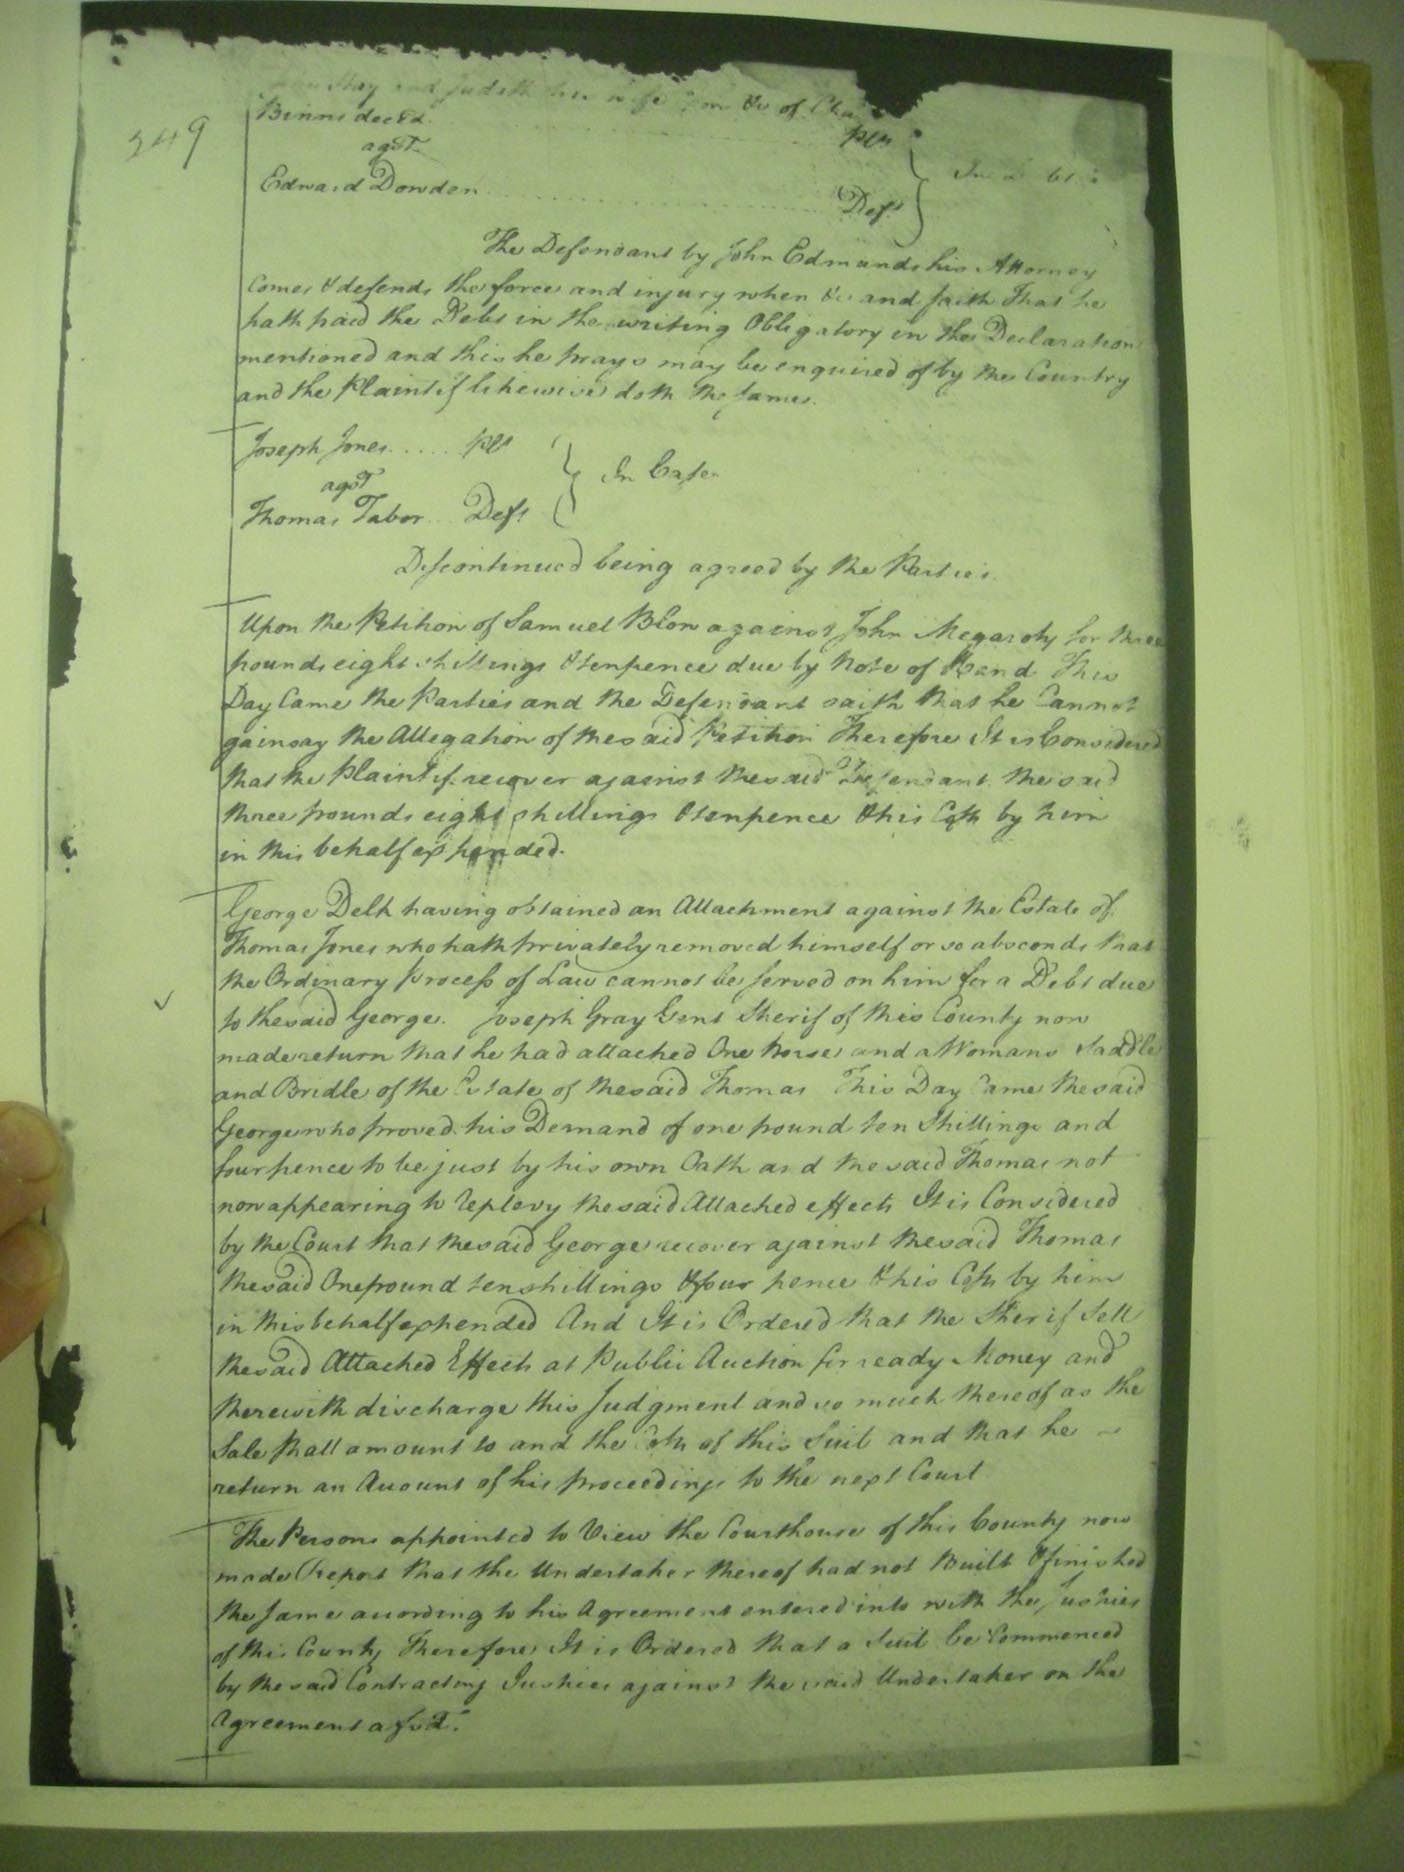 349
and Judith his wife &c of
Binns deced Plts
agst In Debt
Edward Dowden Deft
The Defendant by John Edmunds his Attorney
Comes & defends the force and injury when &c and saith That he
hath paid the Debt in the writing Obligatory in the Declaration
mentioned and this he prays may be enquired of by the Country
and the Plaintif likewise doth the same.
Joseph Jones Plt
agst In Case
Thomas Tabor Deft
Discontinued being agreed by the Parties.
Upon the Petition of Samuel Blow against John Megaroty for three
pounds eight shillings & tenpence due by Note of Hand This
Day Came the Parties and the Defendant saith that he Cannot
gainsay the Allegation of the said Petition Therefore It is Considered
that the Plaintif recover against the said Defendant the said
three pounds eight shillings & tenpence & his Costs by him
in this behalf expended.
George Delk having obtained an Attachment against the Estate of
Thomas Jones who hath privately removed himself or so absconds that
the Ordinary Process of Law cannot be served on him for a Debt due
to the said George. Joseph Gray Gent Sherif of this County now
made return that he had attached One horse and a Womans Saddle
and Bridle of the Estate of the said Thomas This Day Came the said
George who proved his Demand of one pound ten Shillings and
fourpence to be just by his own Oath and the said Thomas not
now appearing to replevy the said Attached effects It is Considered
by the Court that the said George recover against the said Thomas
the said One pound ten shillings & four pence & his Costs by him
in this behalf expended And It is Ordered that the Sherif Sell
the said Attached Effects at Public Auction for ready Money and
therewith discharge this Judgment and so much thereof as the
Sale shall amount to and the Costs of this Suit and that he
return an Account of his proceedings to the next Court
The Persons appointed to View the Courthouse of this County now
made Report that the Undertaker thereof had not Built & finished
the same according to his Agreement entered into with the Justices
of this County Therefore It is Ordered that a Suit be Commenced
by the said Contracting Justices against the said Undertaker on the
Agreement afsd.